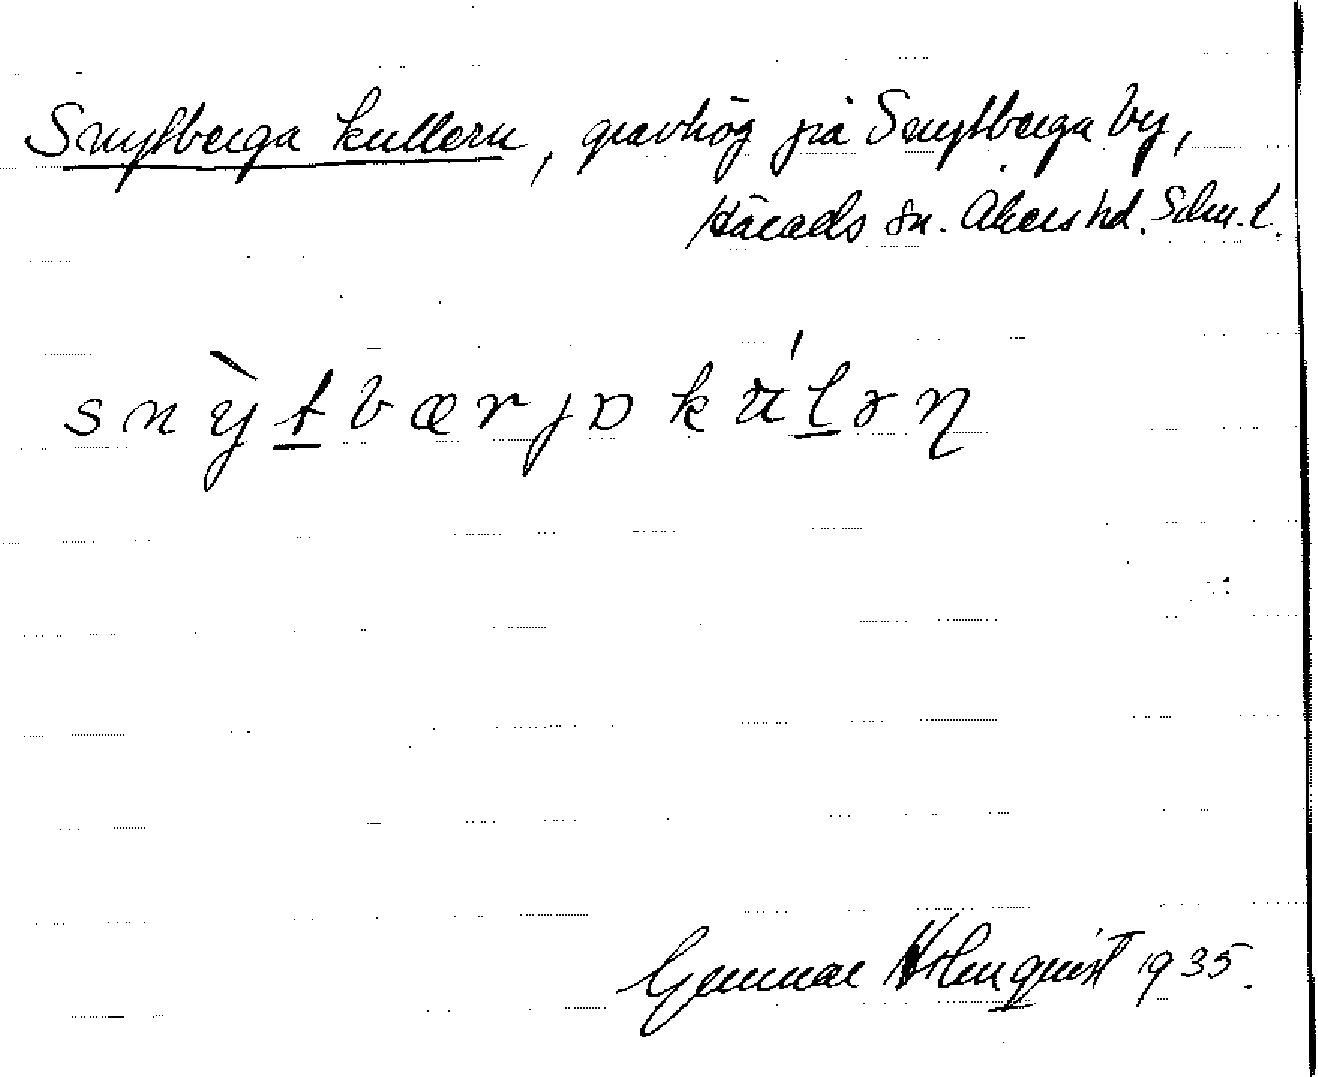 Snytberga kullern, gravhög på Snytberga by,
Härads sn. Åkers hd. Sdm. l.
s n ỳ t̲ b æ r j ɒ k ʉ́ l̲ ə ƞ
Gunnar Holmquist 1935.